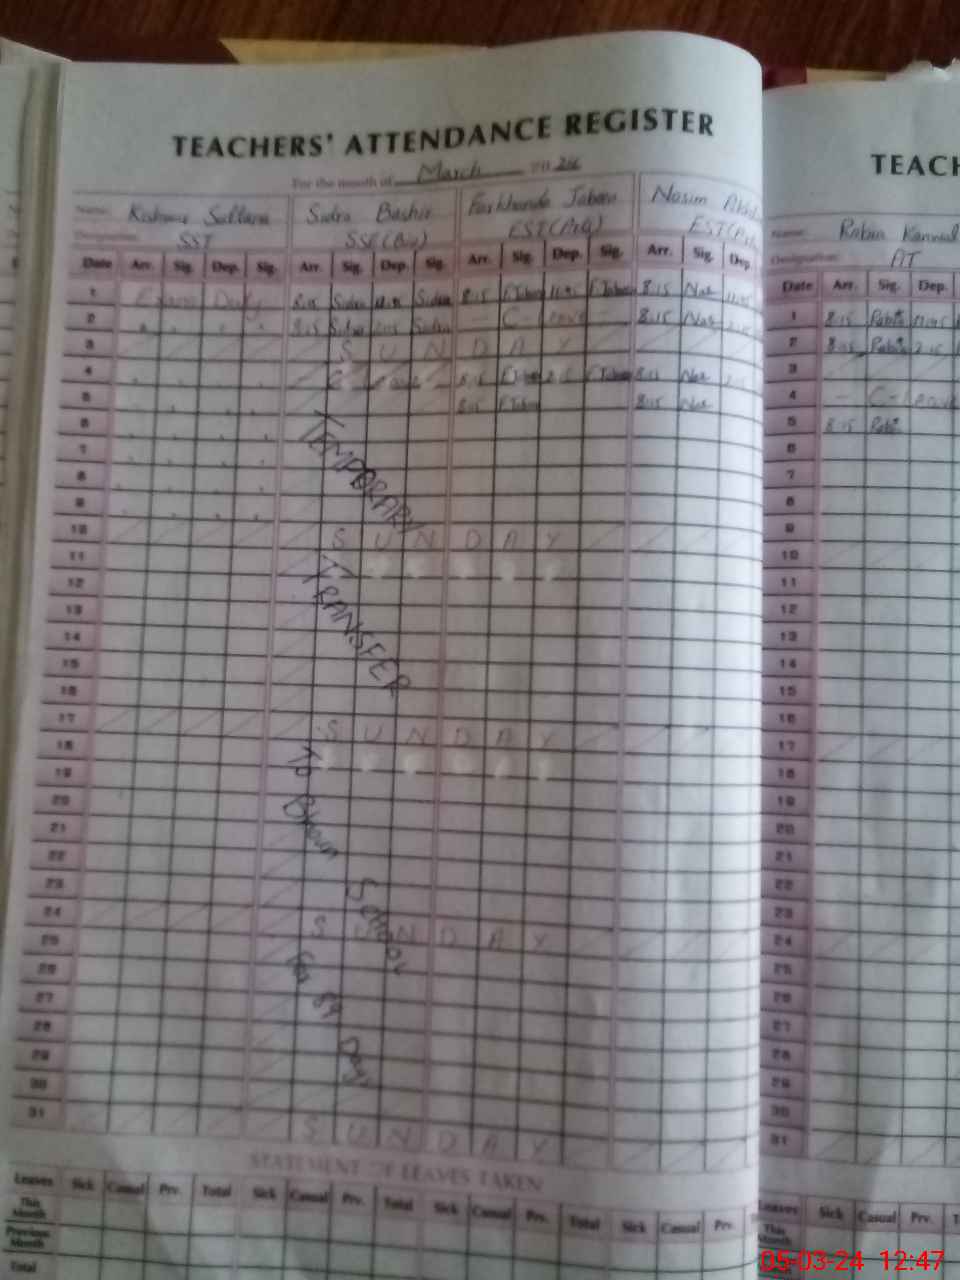 TEACHERS' ATTENDANCE REGISTER
For the month of March 20 24
Name: Kishwar Sultana Sidra Bashir Farkhanda Jabeen Nasim
Designation: SST SSE(Bio) EST(
Date Arr. Sig. Dep. Sig. Arr. Sig. Dep. Sig. Arr. Sig. Dep. Sig. Arr. Sig. Dep.
1 Exam Duty 8:15 Sidra 11:45 Sidra 8:15 11:45 8:15 Nas 11:45
2 8:15 Sidra 2:15 Sidra - C- Leave - 8:15 Nas 2:15
3 S U N D A Y
4 - C- Leave - 8:15 2:15 8:15 Nas 2:15
5 8:15 8:15 Nas
6
7
8
9
10 S U N D A Y
11
12
13
14
15
16
17 S U N D A Y
18
19
20
21
22
23
24 S U N D A Y
25
26
27
28
29
30
31 S U N D A Y
TEMPORARY
TRANSFER
To Bhoun
School
for 89 Days
STATEMENT OF LEAVES TAKEN
Leaves Sick Casual Prv. Total Sick Casual Prv. Total Sick Casual Prv. Total Sick Casual Prv.
This Month
Previous Month
Total
TEACH
Name: Rabia Kanwal
Designation: AT
Date Arr. Sig. Dep.
1 8:15 Rabia 11:45
2 8:15 Rabia 2:15
3
4 - C- Leave
5 8:15 Rabia
6
7
8
9
10
11
12
13
14
15
16
17
18
19
20
21
22
23
24
25
26
27
28
29
30
31
Leaves Sick Casual Prv. T
This Month
Previous Month
Total
05-03-24 12:47